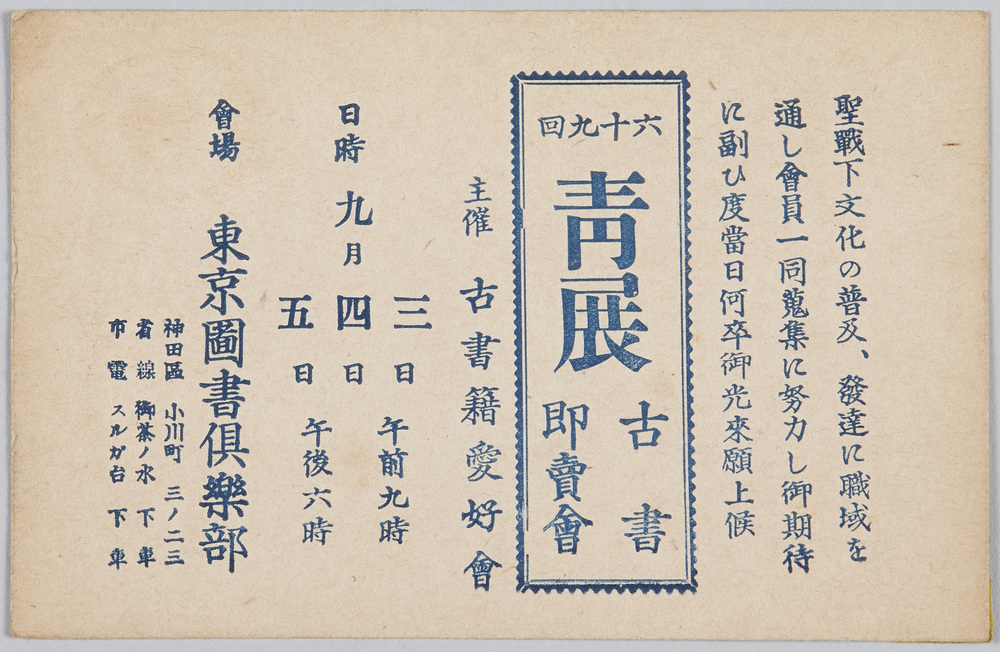 聖戰下文化の普及、發達に職域を
通し會員一同蒐集に努力し御期待
に副ひ度當日何卒御光來願上候
六十九回
青展
古書
即賣會
主催 古書籍愛好會
日時 九月
三日
四日
五日
午前九時
午後六時
會場 東京圖書倶樂部
神田區 小川町 三ノ二三
省線 御茶ノ水 下車
市電 スルガ台 下車